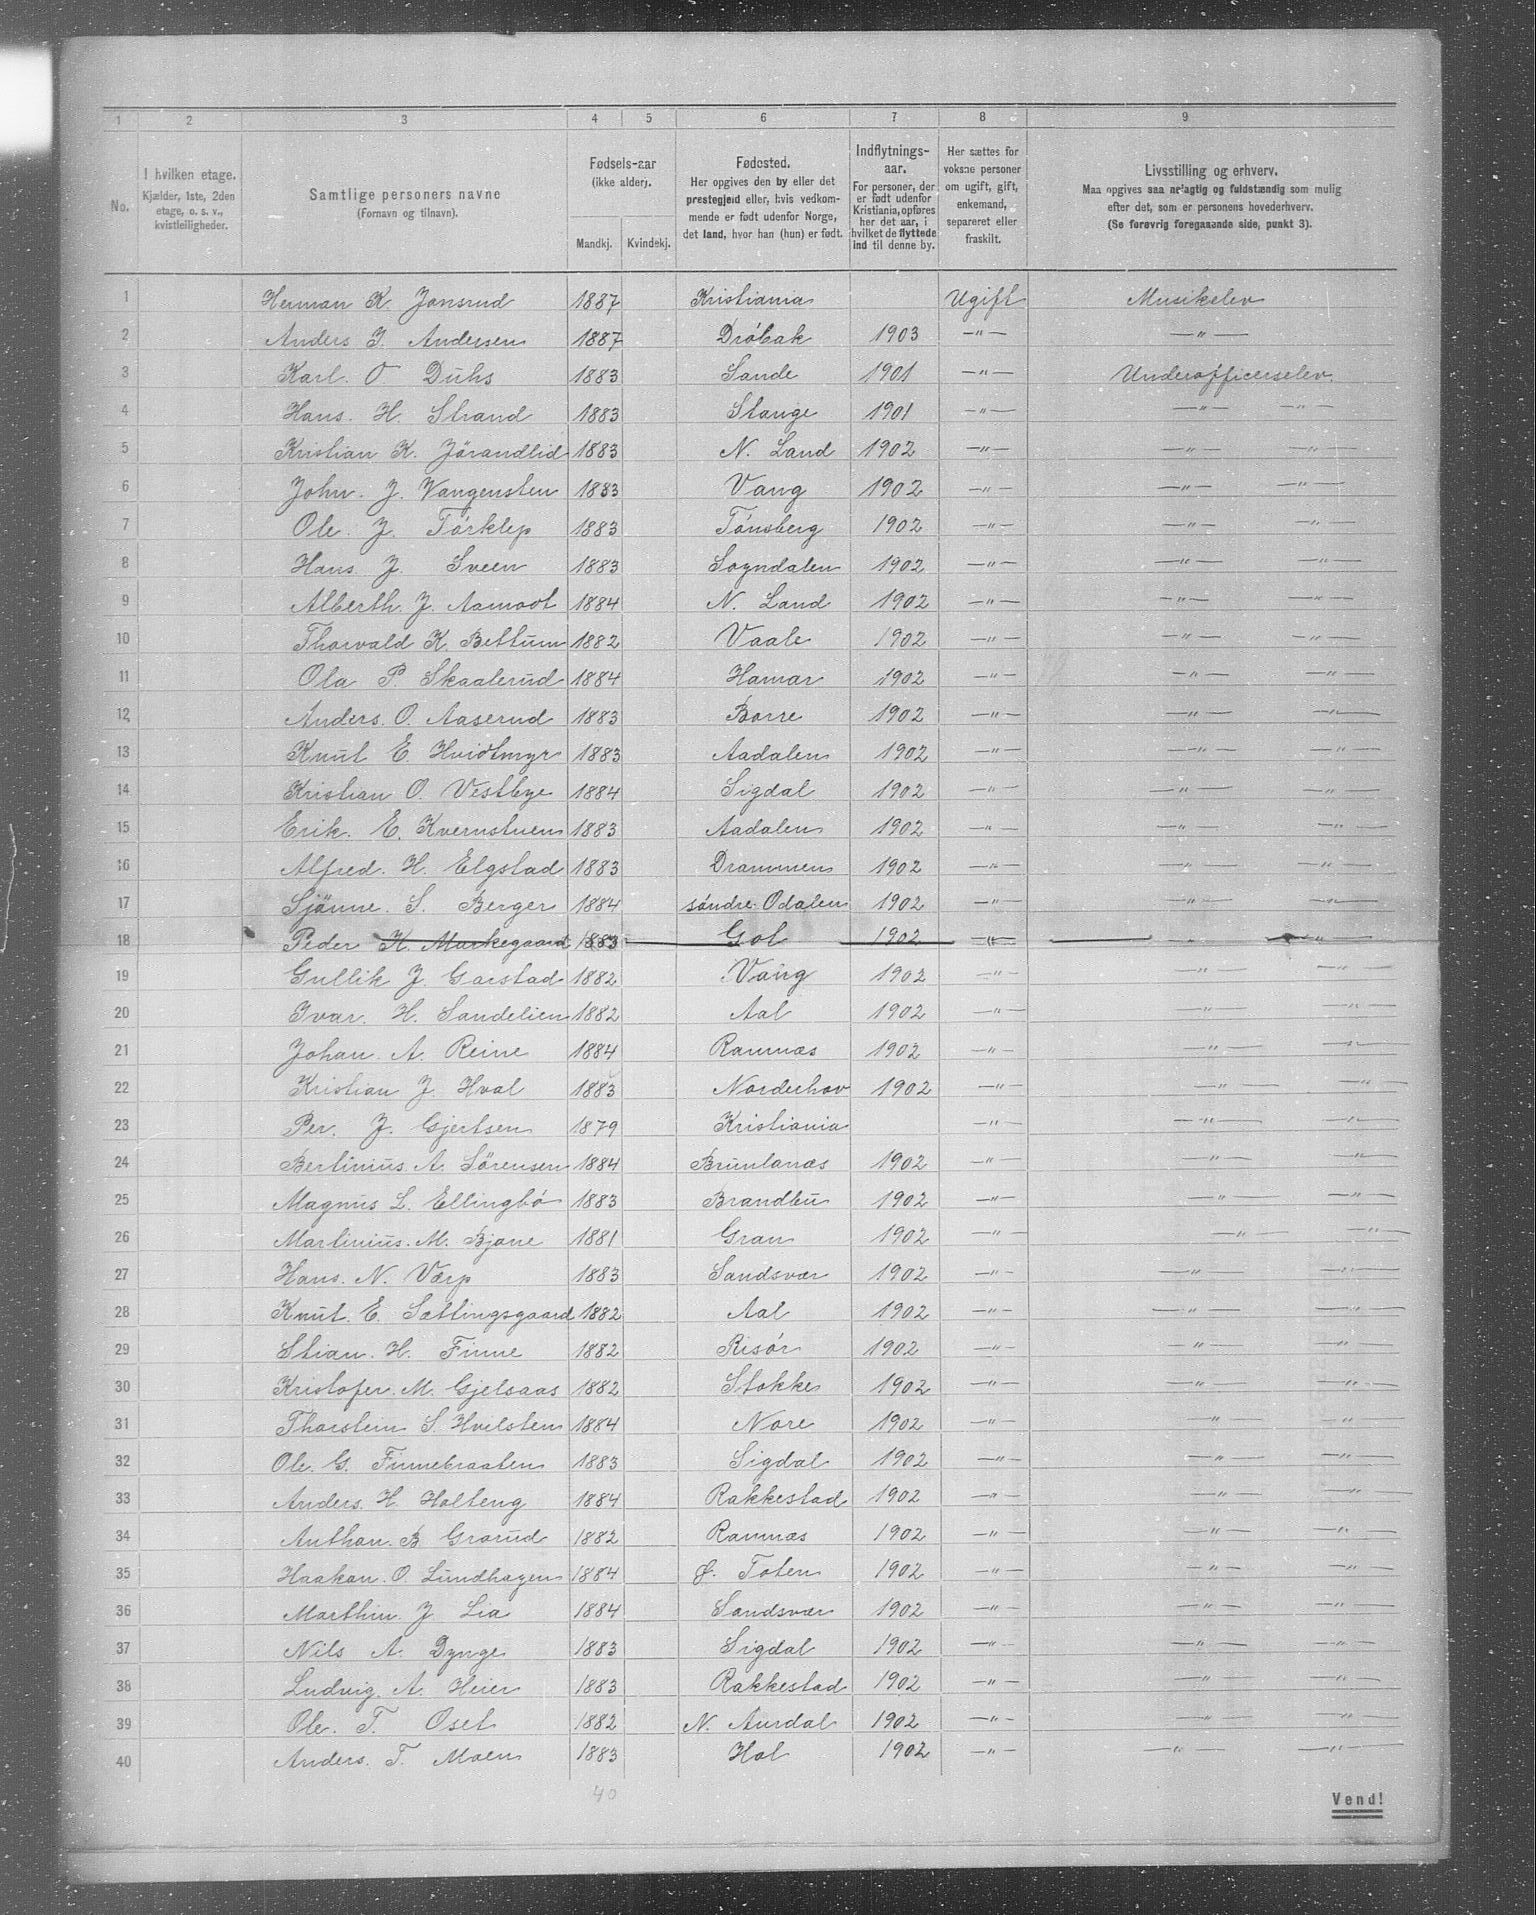 1 2 3 4 5 6 7 8 9
No.
I hvilken etage.
Kjælder, 1ste, 2den
etage, o. s. v.,
kvistleiligheder.
Samtlige personers navne
(Fornavn og tilnavn).
Fødsels-aar
(ikke alder).
Mandkj. Kvindekj.
Fødested.
Her opgives den by eller det
prestegjeld eller, hvis vedkom-
mende er født udenfor Norge,
det land, hvor han (hun) er født.
Indflytnings-
aar.
For personer, der
er født udenfor
Kristiania, opføres
her det aar, i
hvilket de flyttede
ind til denne by.
Her sættes for
voksne personer
om ugift, gift,
enkemand,
separeret eller
fraskilt.
Livsstilling og erhverv.
Maa opgives saa nøiagtig og fuldstændig som mulig
efter det, som er personens hovederhverv.
(Se forøvrig foregaaende side, punkt 3).
1 Herman K. Jonsrud 1887 Kristiania Ugift Musikelev
2 Anders J. Andersen 1887 Drøbak 1903 —"— —"—
3 Karl. O Duhs 1883 Sande 1901 —"— Underofficerselev.
4 Hans. H. Strand 1883 Stange 1901 —"— —"— —"—
5 Kristian K. Jørandlid 1883 N. Land 1902 —"— —"— —"—
6 John. J. Vangensten 1883 Vang 1902 —"— —"— —"—
7 Ole. J. Tørklep 1883 Tønsberg 1902 —"— —"— —"—
8 Hans. J. Sveen 1883 Sogndalen 1902 —"— —"— —"—
9 Alberth. J. Aamodt 1884 N. Land 1902 —"— —"— —"—
10 Thorvald K. Bettum 1882 Vaale 1902 —"— —"— —"—
11 Ola P. Skaalerud 1884 Hamar 1902 —"— —"— —"—
12 Anders. O. Aaserud 1883 Borre 1902 —"— —"— —"—
13 Knut E. Hvidtmyr 1883 Aadalen 1902 —"— —"— —"—
14 Kristian O. Vestbye 1884 Sigdal 1902 —"— —"— —"—
15 Erik. E. Kvernstuen 1883 Aadalen 1902 —"— —"— —"—
16 Alfred. H. Elgstad 1883 Drammen 1902 —"— —"— —"—
17 Sjønne. S. Berger 1884 søndre Odalen 1902 —"— —"— —"—
18 Peder K. Markegaard 1883 Gol 1902 —"— —"— —"—
19 Gullik J. Garstad 1882 Vang 1902 —"— —"— —"—
20 Ivar. H. Sandelien 1882 Aal 1902 —"— —"— —"—
21 Johan. A. Reine 1884 Ramnæs 1902 —"— —"— —"—
22 Kristian J. Hval 1883 Norderhov 1902 —"— —"— —"—
23 Per. J. Gjertsen 1879 Kristiania —"— —"— —"—
24 Bertinius. A. Sørensen 1884 Brunlanæs 1902 —"— —"— —"—
25 Magnus L. Ellingbø 1883 Brandbu 1902 —"— —"— —"—
26 Martinius. M. Bjone 1881 Gran 1902 —"— —"— —"—
27 Hans. N. Værp 1883 Sandsvær 1902 —"— —"— —"—
28 Knut. E. Sættingsgaard 1882 Aal 1902 —"— —"— —"—
29 Stian. H. Finne 1882 Risør 1902 —"— —"— —"—
30 Kristofer. M. Gjelsaas 1882 Stokke 1902 —"— —"— —"—
31 Thorstein S. Hvilsten 1884 Nore 1902 —"— —"— —"—
32 Ole. G. Finnebraaten 1883 Sigdal 1902 —"— —"— —"—
33 Anders. H. Holteng 1884 Rakkestad 1902 —"— —"— —"—
34 Anthon. B. Grorud 1882 Ramnæs 1902 —"— —"— —"—
35 Haakon. O. Lundhagen 1884 Ø. Toten 1902 —"— —"— —"—
36 Marthin. J. Lia 1884 Sandsvær 1902 —"— —"— —"—
37 Nils A. Dynge 1883 Sigdal 1902 —"— —"— —"—
38 Ludvig. A. Heier 1883 Rakkestad 1902 —"— —"— —"—
39 Ole. T. Oset 1882 N. Aurdal 1902 —"— —"— —"—
40 Anders. T. Moen 1883 Hol 1902 —"— —"— —"—
40
Vend!